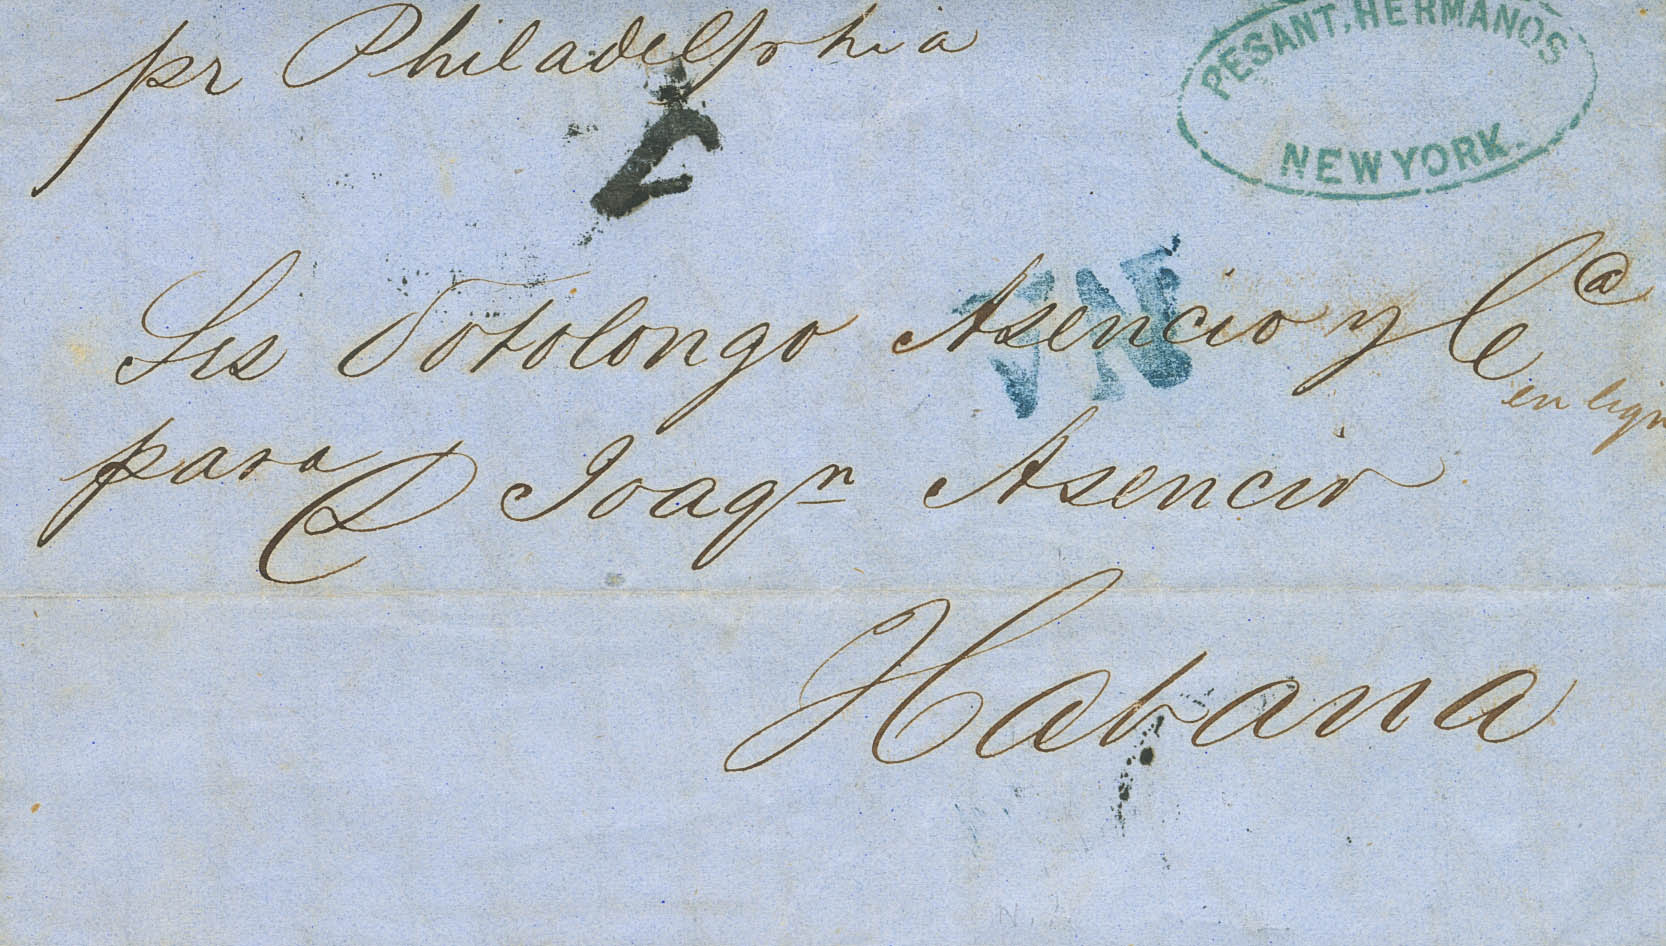 pr Philadelphia
PESANT, HERMANOS
NEW YORK.
Srs Sotolongo Asencio y Cª
en
para D Joaqn Asencio
Habana